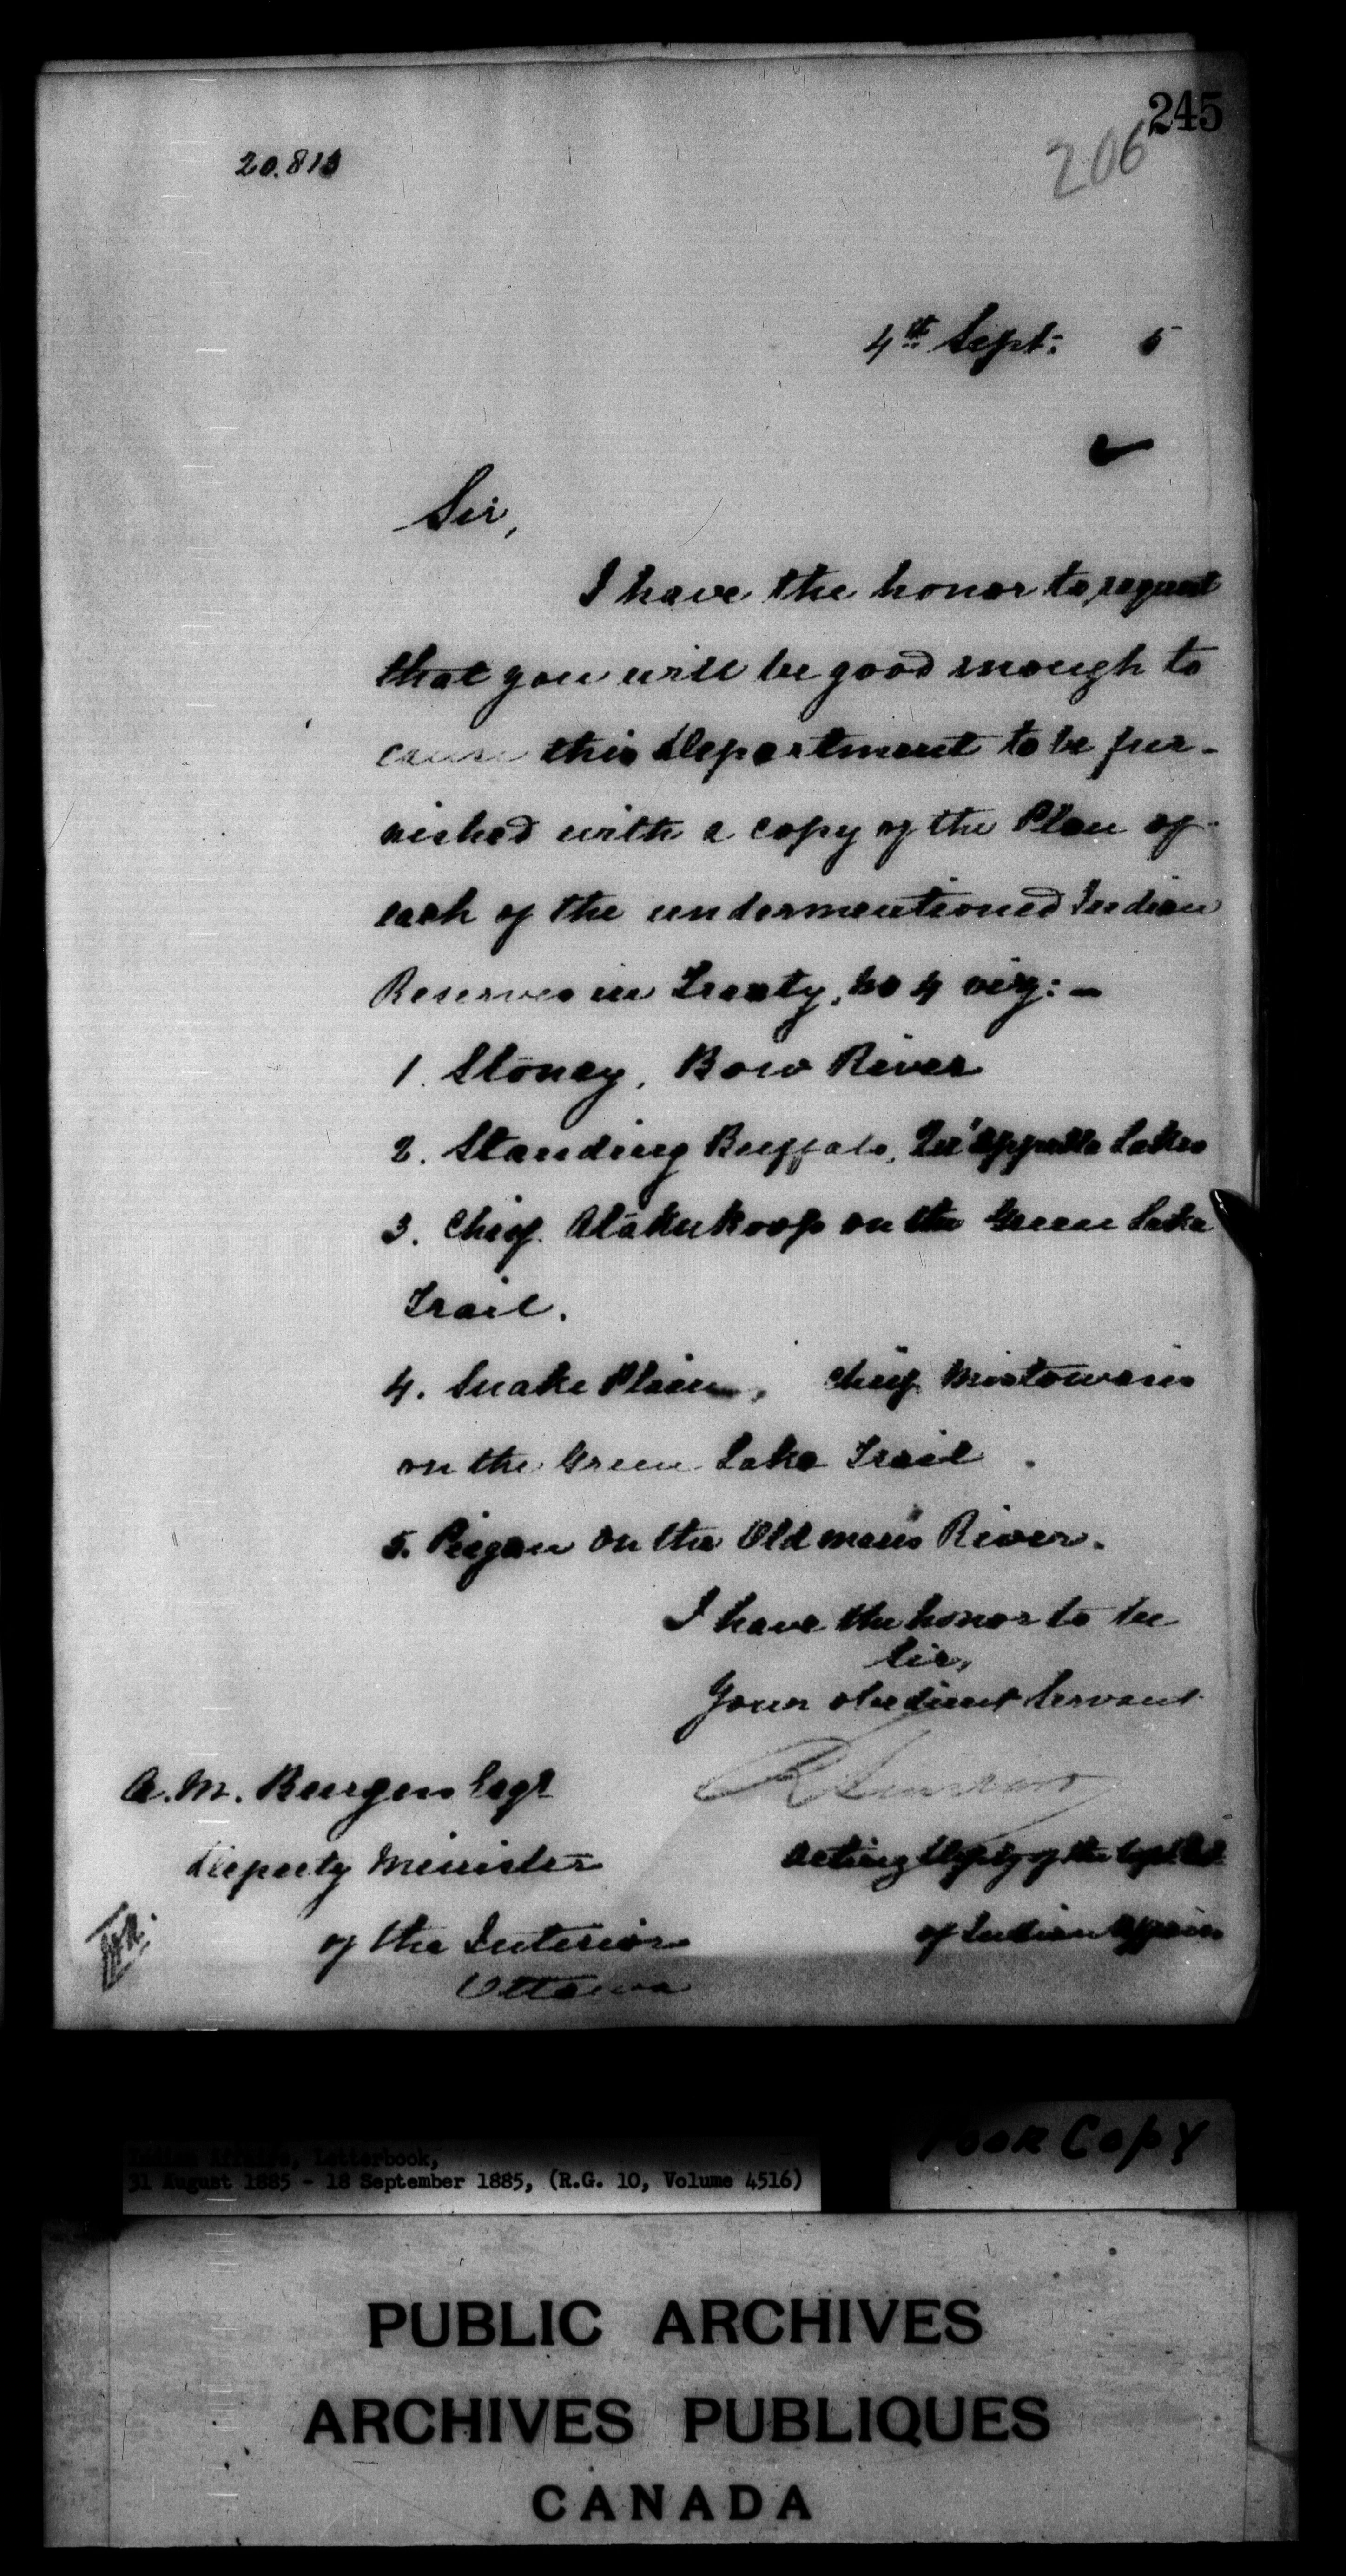 245
206
20.813
4th Sept: 5
Sir,
I have the honor to request
that you will be good enough to
cause this Department to be fur-
nished with a copy of the Plan of
each of the undermentioned Indian
Reserves in Treaty, No 4 viz: -
1. Stoney, Bow River
2. Standing Buffalo, Qu'Appelle Lakes
3. Chief Atakukoop on the Green Lake
Trail.
4. Snake Plain, Chief Mistowasis
on the Green Lake Trail.
5. Piegan on the Old man's River.
I have the honor to be
Sir,
Your obedient Servant
A. M. Burgess Esqr
Deputy Minister
of the Interior
Ottawa
Acting Depty of the Supt Genl
of Indian Affairs
Poor Copy
Indian Affairs, Letterbook,
31 August 1885 - 18 September 1885, (R.G. 10, Volume 4516)
PUBLIC ARCHIVES
ARCHIVES PUBLIQUES
CANADA